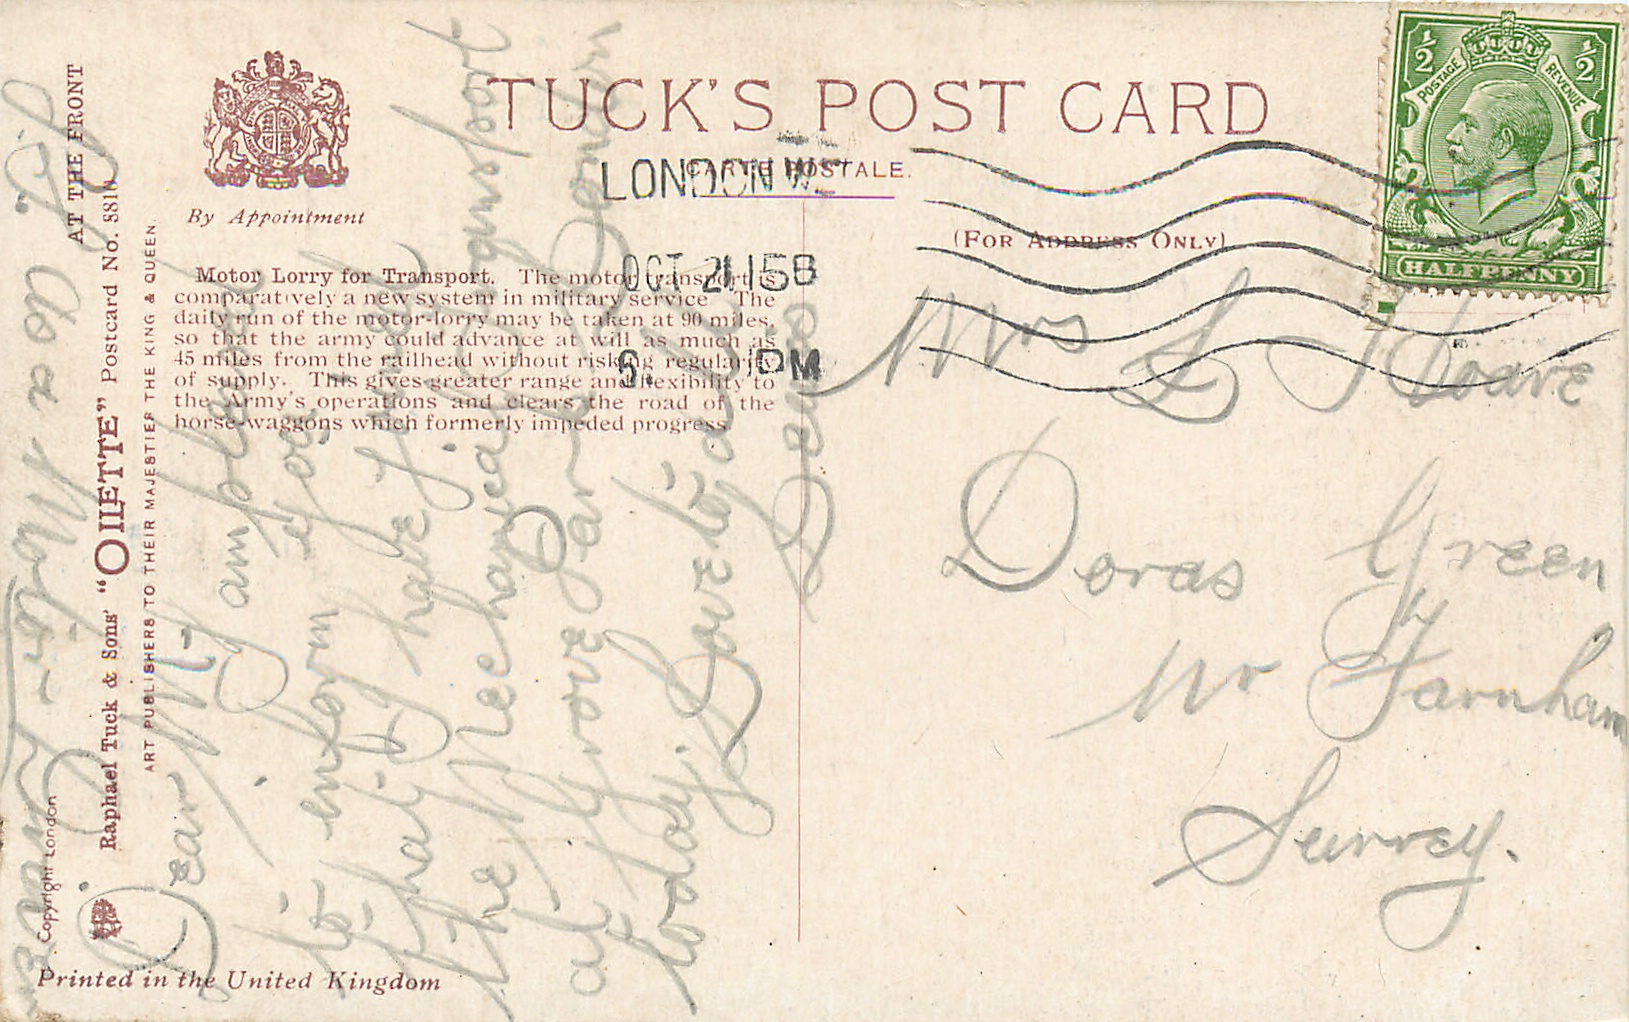 TUCK'S POST CARD
CARTE POSTALE.
(FOR ADDRESS ONLY)
By Appointment
Motor Lorry for Transport. The motor transport is
comparatively a new system in military service. The
daily run of the motor-lorry may be taken at 90 miles,
so that the army could advance at will as much as
45 miles from the railhead without risking regularity
of supply. This gives greater range and flexibility to
the Army's operations and clears the road of the
horse-waggons which formerly impeded progress.
AT THE FRONT
Raphael Tuck & Sons' "OILETTE" Postcard No. 8810
ART PUBLISHERS TO THEIR MAJESTIES THE KING & QUEEN
Copyright London
Printed in the United Kingdom
LONDON W.
OCT 21 15B
PM
½ ½
POSTAGE REVENUE
HALFPENNY
Mrs Hoare
Doras Green
Nr Farnham
Surrey.
Dear M.
I am pleased
to inform you
that I have joined
the Mechanical Transport
at Grove Park London
today.
Love to all
a Motor